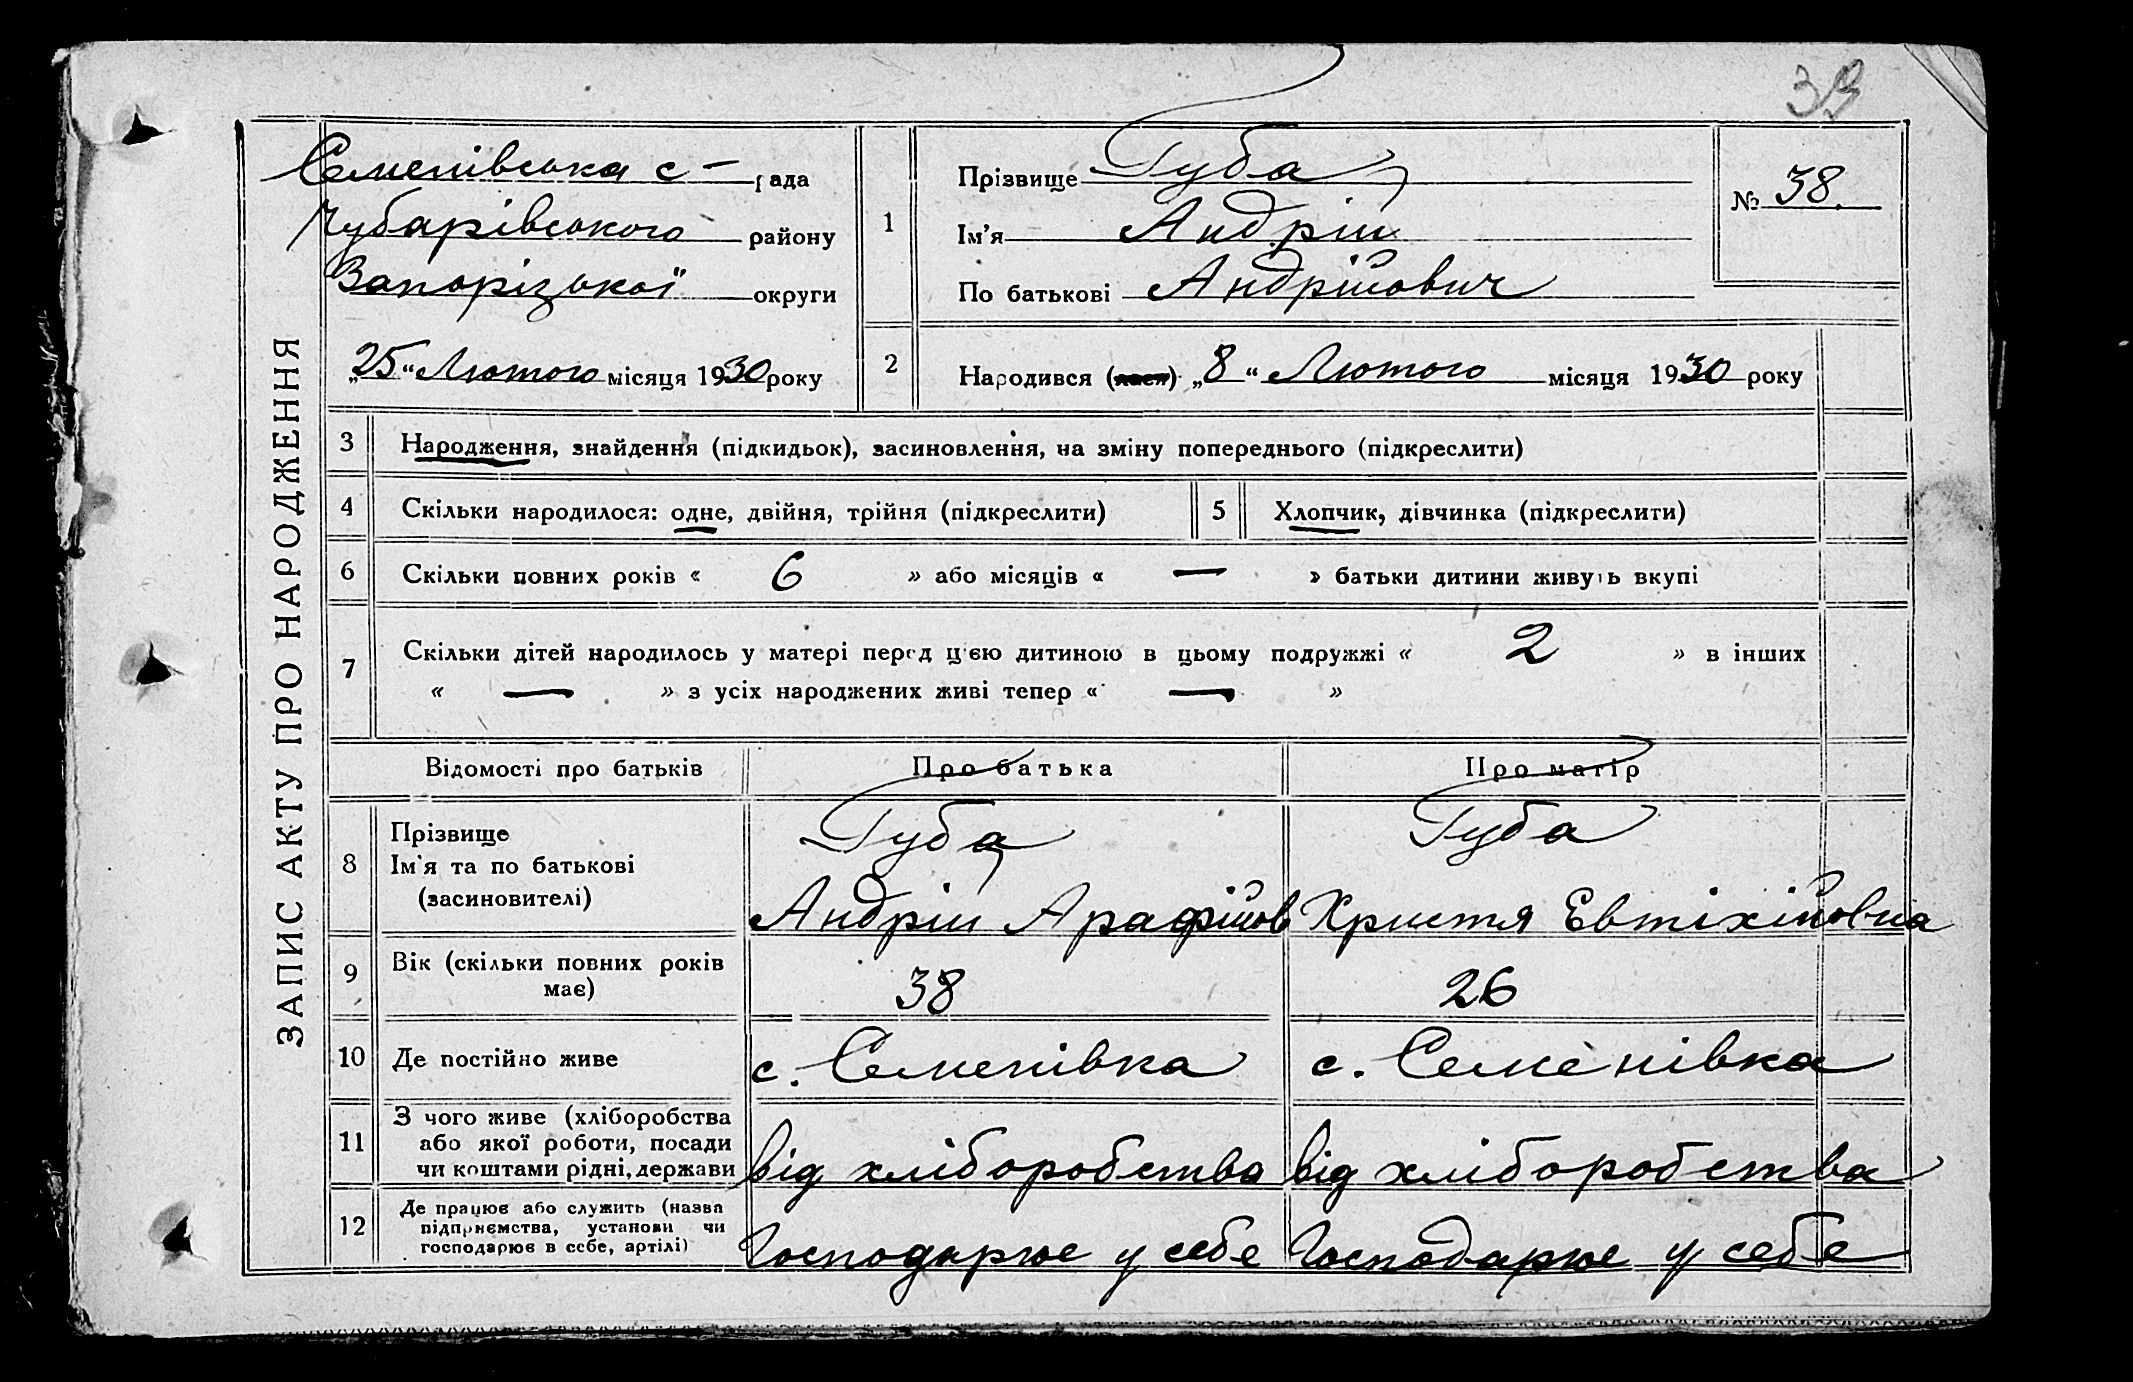 39
ЗАПИС АКТУ ПРО НАРОДЖЕННЯ
Семенівська с – рада
Чубарівського району
Запорізької округи
„25“ Лютого місяця 1930 року
1
Прізвище Губа
Ім’я Андрій
По батькові Андрійович
№ 38.
2
Народився (лася) „8“ Лютого місяця 1930 року
3 Народження, знайдення (підкидьок), засиновлення, на зміну попереднього (підкреслити)
4 Скільки народилося: одне, двійня, трійня (підкреслити)
5 Хлопчик, дівчинка (підкреслити)
6 Скільки повних років « 6 » або місяців « — » батьки дитини живуть вкупі
7 Скільки дітей народилось у матері перед цією дитиною в цьому подружжі « 2 » в інших
« — » з усіх народжених живі тепер « — »
Відомості про батьків Про батька Про матір
8 Прізвище
Ім’я та по батькові
(засиновителі)
Губа
Андрій Арафійов
Губа
Христя Евтіхійовна
9 Вік (скільки повних років
має)
38
26
10 Де постійно живе
с. Семенівка
с. Семенівка
11 З чого живе (хліборобства
або якої роботи, посади
чи коштами рідні, держави
від хліборобства
від хліборобства
12 Де працює або служить (назва
підприємства, установи чи
господарює в себе, артілі)
Господарює у себе
Господарює у себе